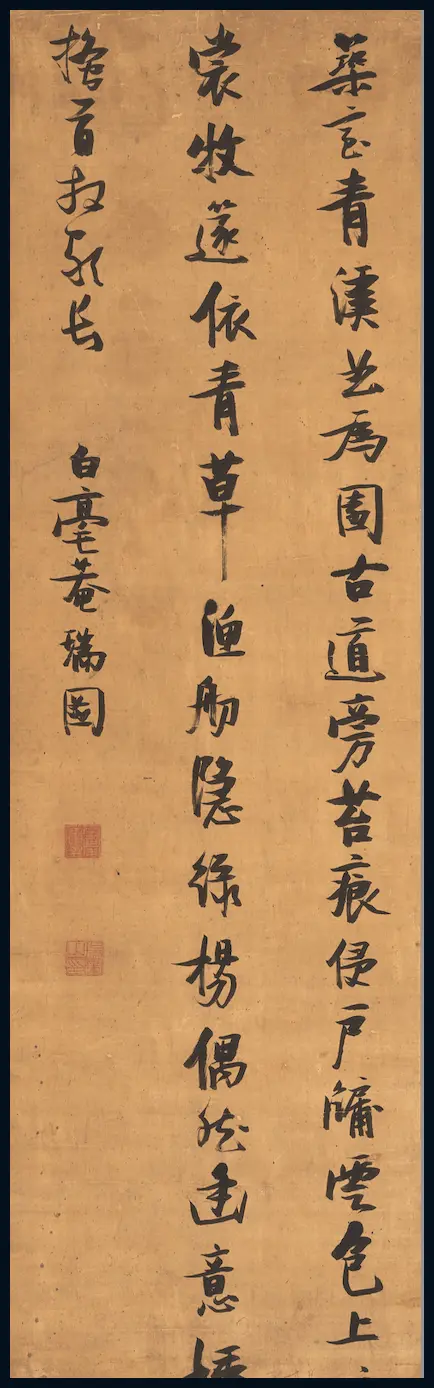 築室青溪為園古道旁苔痕侵戶牖雲色上
裳牧篴依青草漁舠隱綠楊偶然幽意
搔首放歌長
白毫菴瑞圖